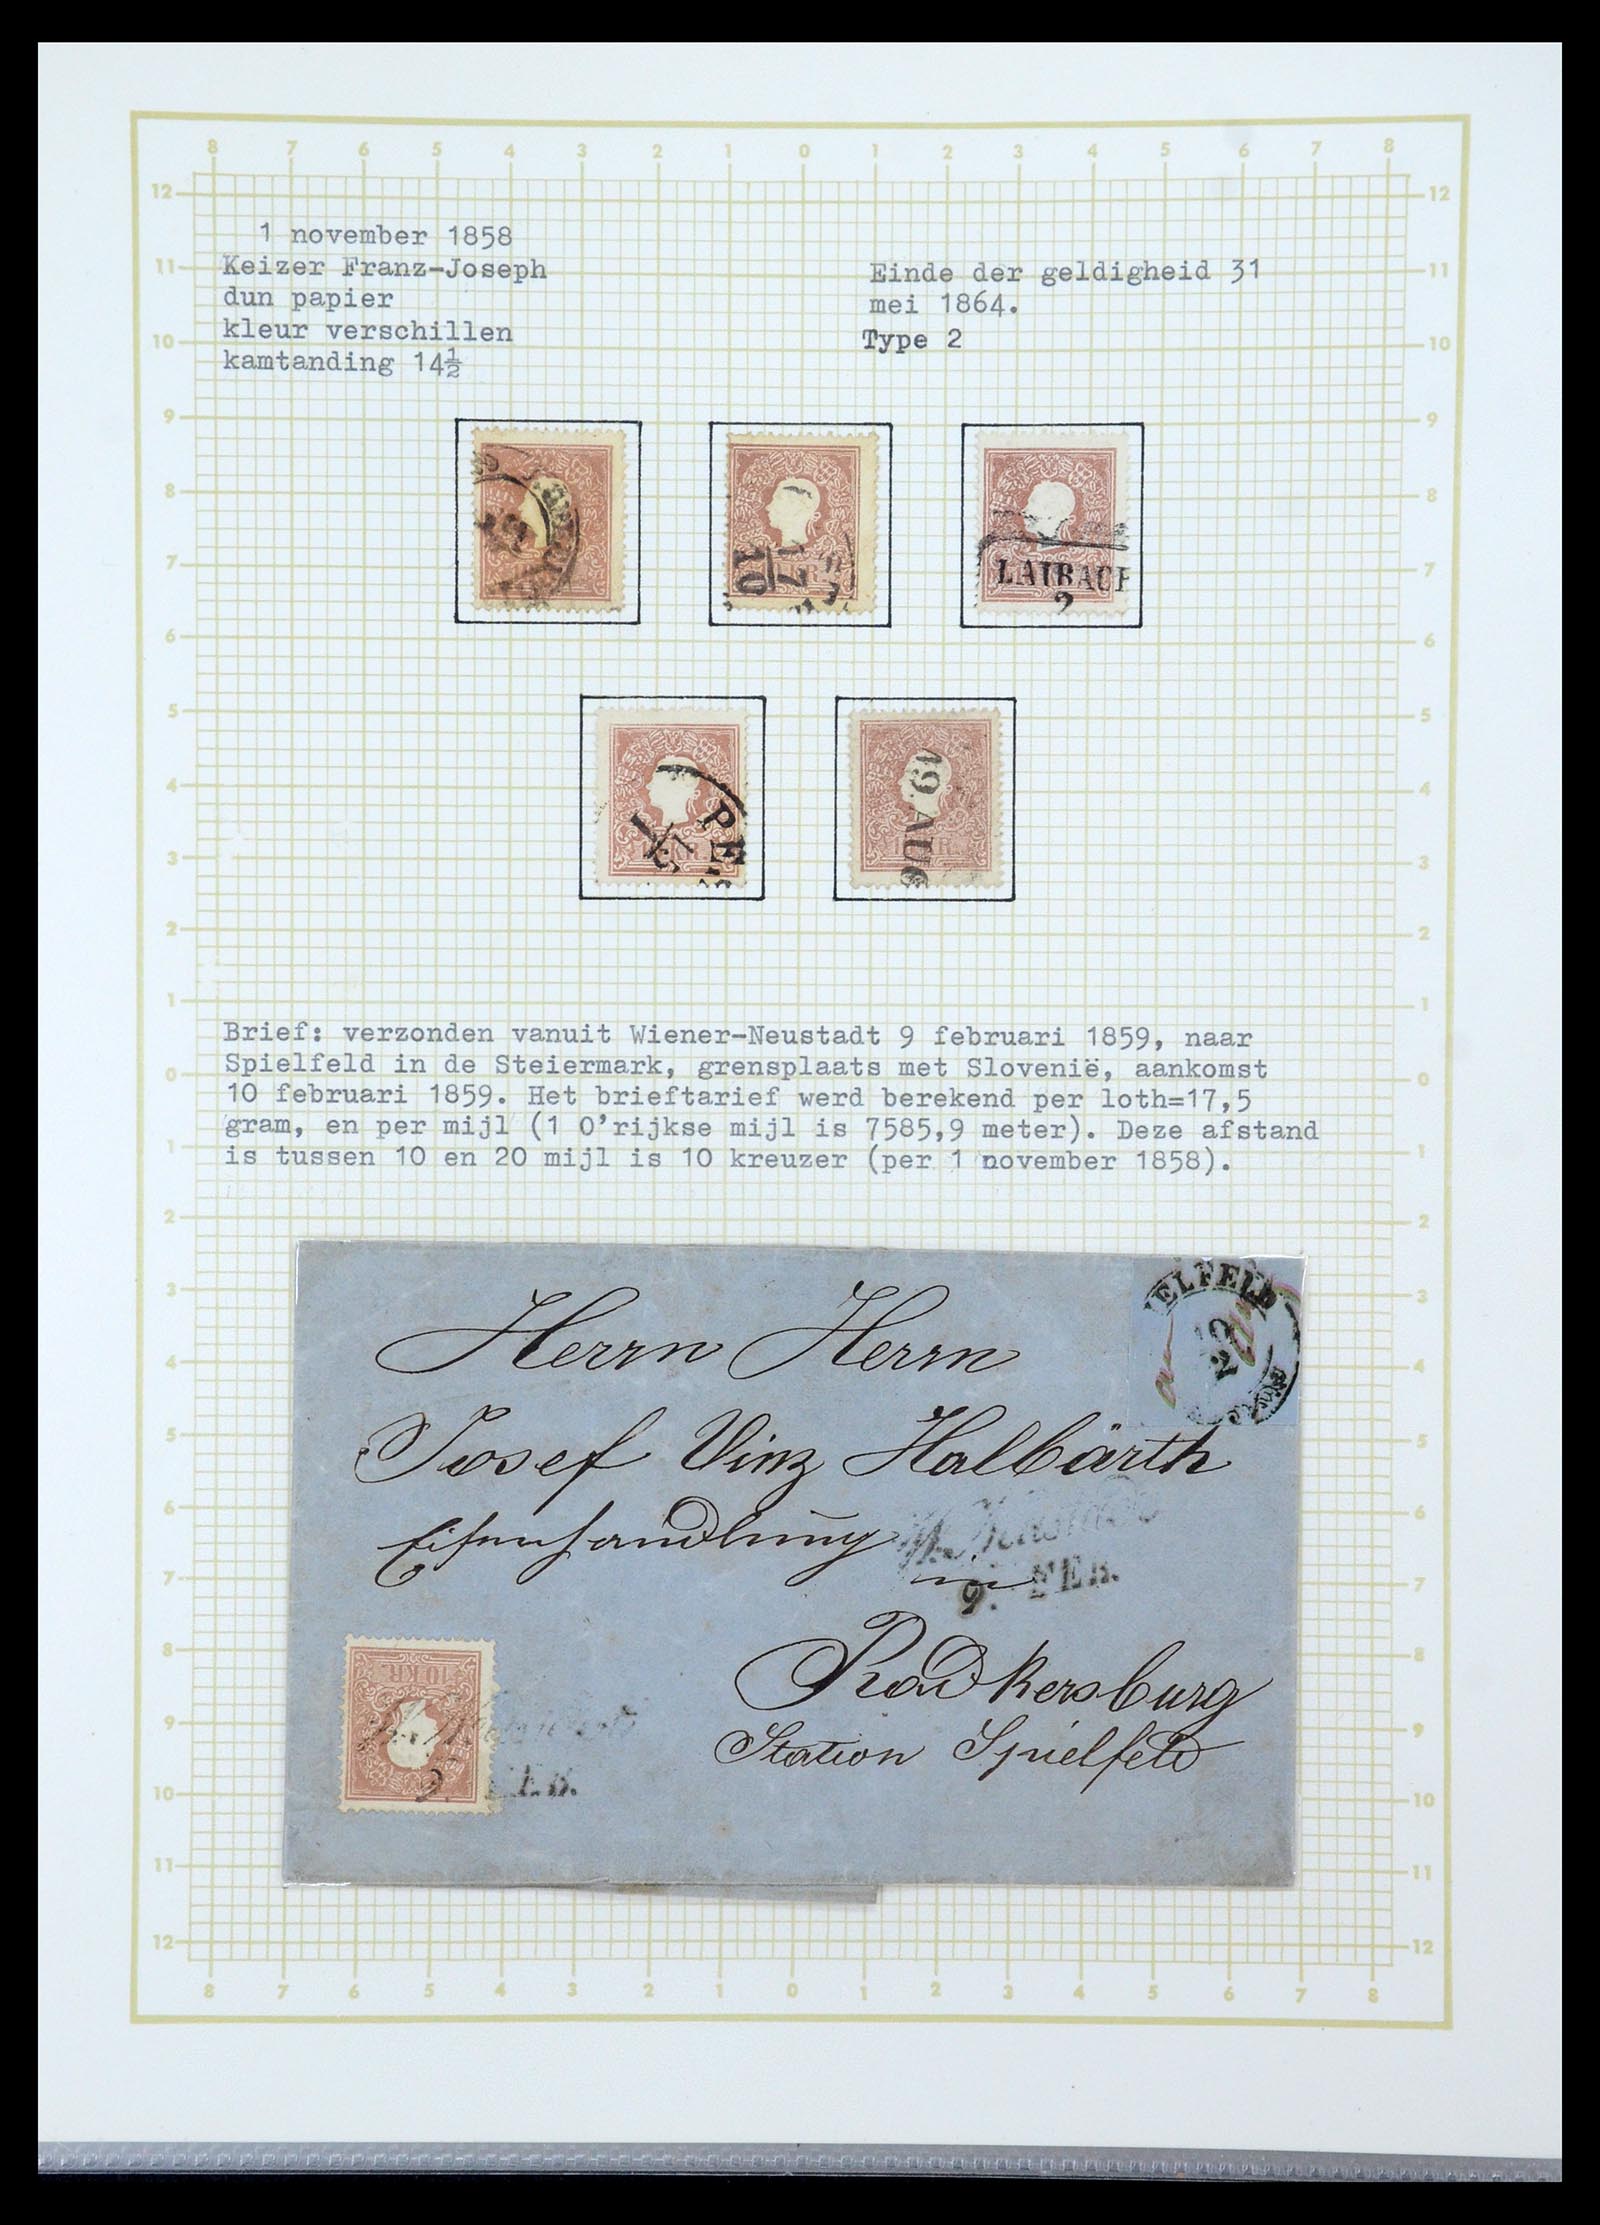 8 7 6 5 4 3 2 1 0 1 2 3 4 5 6 7 8
12 12
1 november 1858
11 Keizer Franz-Joseph Einde der geldigheid 31 11
dun papier mei 1864.
10 kleur verschillen Type 2 10
kamtanding 14½
9 9
8 8
10
17
7 LAIBACH 7
2
6 6
5 5
19. AUG
4 4
PE
KR.
3 3
2 2
1 1
Brief: verzonden vanuit Wiener-Neustadt 9 februari 1859, naar
Spielfeld in de Steiermark, grensplaats met Slovenië, aankomst
0 0
10 februari 1859. Het brieftarief werd berekend per loth=17,5
gram, en per mijl (1 O'rijkse mijl is 7585,9 meter). Deze afstand
1 1
is tussen 10 en 20 mijl is 10 kreuzer (per 1 november 1858).
2 2
3 3
IELFELD
10
2
Herrn Herrn
4 4
Josef Vinz Halbärth
5 5
6 6
Eisenhandlung in
W. Neustadt
9. FEB.
7 7
8 8
10 KR.
Radkersburg
9 9
Station Spielfeld
9. FEB.
10 10
11 11
12 12
8 7 6 5 4 3 2 1 0 1 2 3 4 5 6 7 8